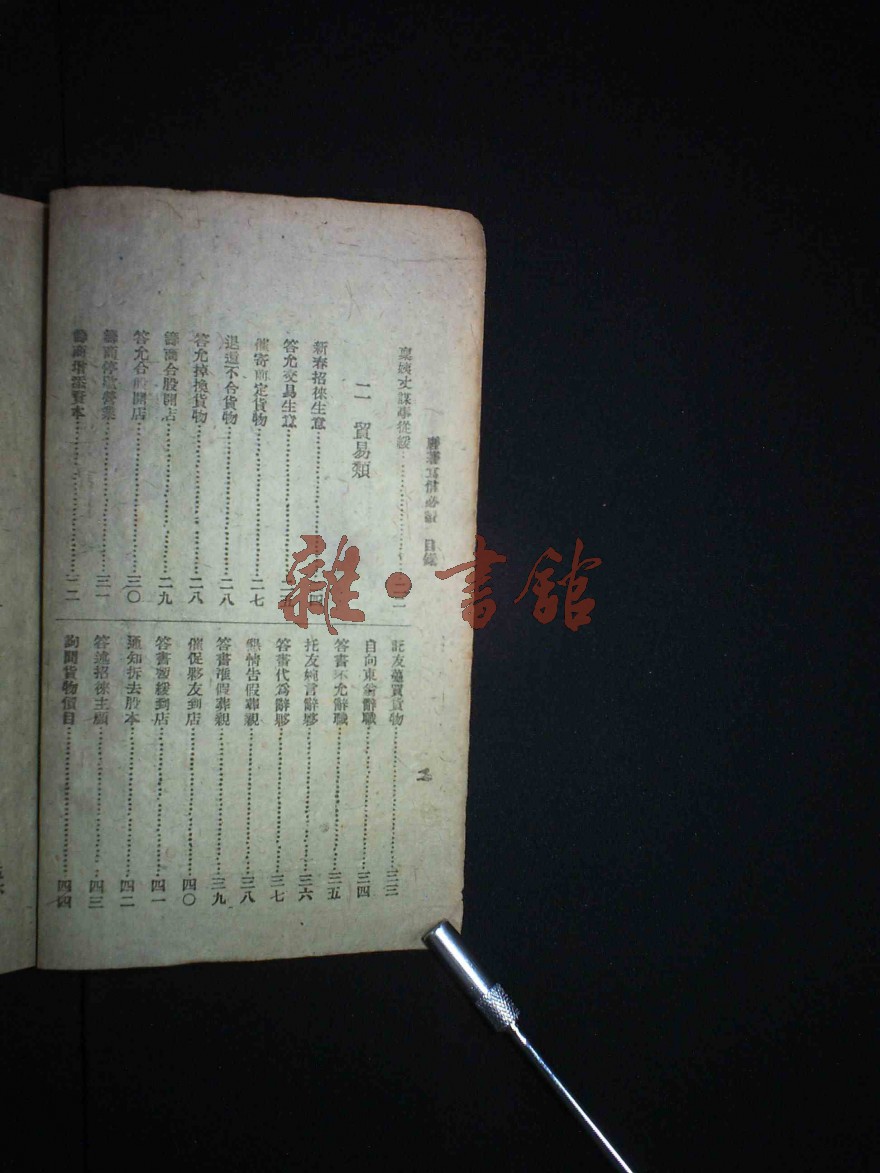 目錄
稟姨丈謀事從緩
二 貿易類
新春招徠生意
答允交易生意
催寄前定貨物 二七
退還不合貨物 二八
答允掉換貨物 二八
籌商合股開店 二九
答允合股開店 三〇
籌商停歇營業 三一
籌商增添資本
託友蠆買貨物 三三
自向東翁辭職 三四
答書不允辭職 三五
托友婉言辭夥 三六
答書代為辭夥 三七
懇情告假葬親 三八
答書准假葬親 三九
催促夥友到店 四〇
答書暫緩到店 四一
通知拆去股本 四二
答述招徠主顧 四三
詢問貨物價目 四四
雜·書館